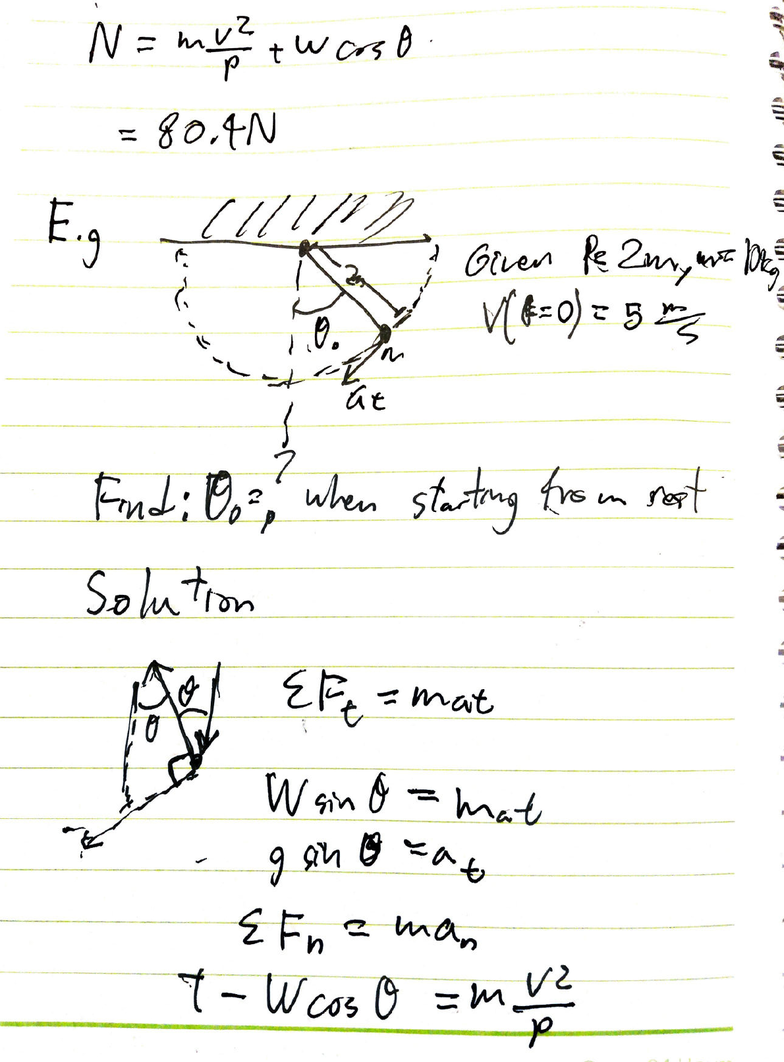 N = m v²/ρ + W cos θ.
= 80.4N
E.g
Given R= 2m, m= 10kg
V(t=0) = 5 m/s
2m
θ.
m
at
Find: θ₀=? when starting from rest
Solution
θ θ
ΣFt = mat
W sin θ = mat
g sin θ = at
ΣFn = man
T - W cos θ = m v²/ρ